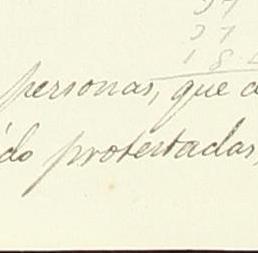 37
37
18
personas, que
ido protestadas,